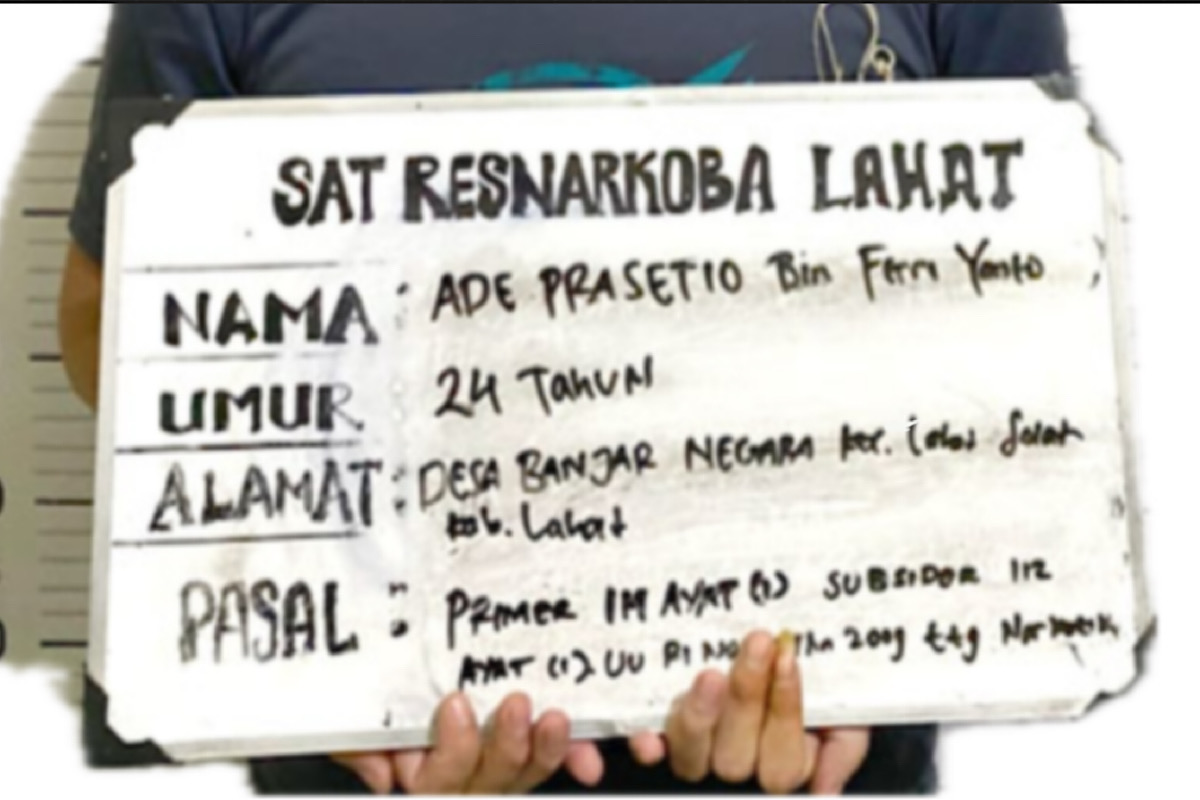 SAT RESNARKOBA LAHAT
NAMA : ADE PRASETIO Bin Ferri Yanto
UMUR 24 TAHUN
ALAMAT : DESA BANJAR NEGARA kec. Selat
kab. Lahat
PASAL : PRIMER 114 AYAT (1) SUBSIDER 112
AYAT (1) UU RI NO Thn 2009 ttg Narkotik